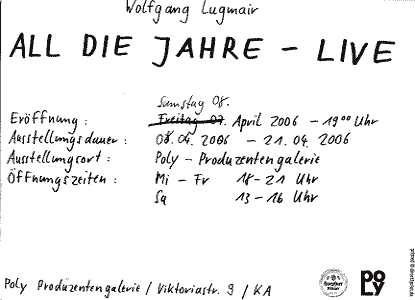 Wolfgang Lugmair
ALL DIE JAHRE - LIVE
Samstag 08.
Eröffnung : Freitag 07. April 2006 - 19⁰⁰ Uhr
Ausstellungsdauer : 08.04.2006 - 21.04.2006
Ausstellungsort : Poly - Produzentengalerie
Öffnungszeiten : Mi - Fr 18-21 Uhr
Sa 13-16 Uhr
Poly Produzentengalerie / Viktoriastr. 9 / KA
poly